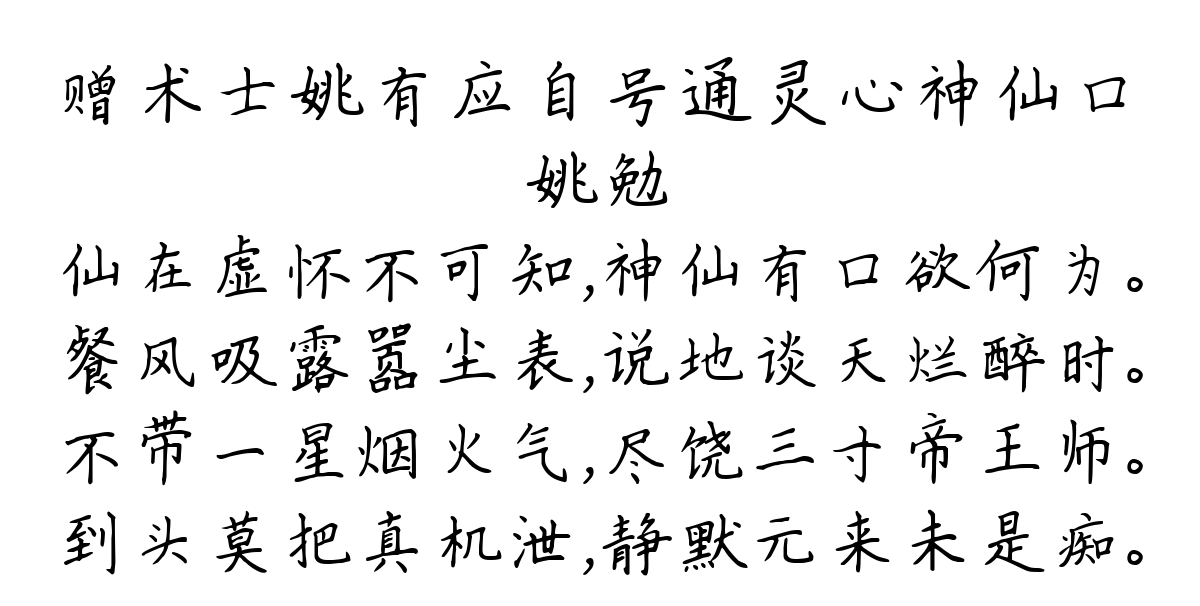 赠术士姚有应自号通灵心神仙口
姚勉
仙在虚怀不可知,神仙有口欲何为。
餐风吸露嚣尘表,说地谈天烂醉时。
不带一星烟火气,尽饶三寸帝王师。
到头莫把真机泄,静默元来未是痴。